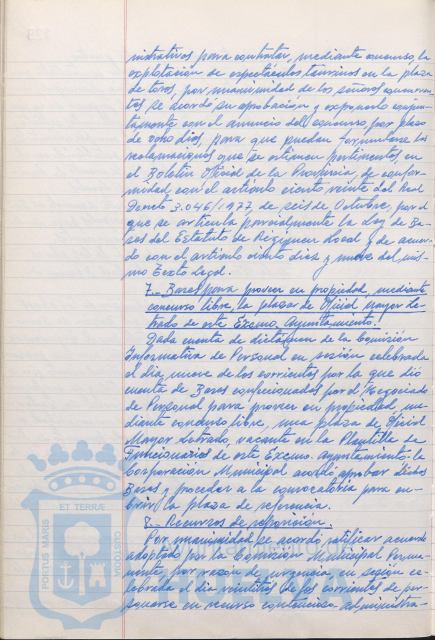 nistrativas para contratar, mediante concurso, la
explotación de espectáculos taurinos en la plaza
de toros, por unanimidad de los señores concurren-
tes se acordó su aprobación y exponerlo conjun-
tamente con el anuncio del concurso, por plazo
de ocho días, para que puedan formularse las
reclamaciones que se estimen pertinentes, en
el Boletín Oficial de la Provincia, de confor-
midad con el artículo ciento veinte del Real
Decreto 3.046/1977 de seis de Octubre, por el
que se articula parcialmente la Ley de Ba-
ses del Estatuto de Régimen Local y de acuer-
do con el artículo ciento diez y nueve del mis-
mo Texto Legal.
7.- Bases para proveer en propiedad, mediante
concurso libre, la plaza de Oficial mayor Le-
trado de este Excmo. Ayuntamiento.
Dada cuenta de dictamen de la Comisión
Informativa de Personal en sesión celebrada
el día nueve de los corrientes por la que dio
cuenta de Bases confeccionadas por el Negociado
de Personal para proveer en propiedad, me-
diante concurso libre, una plaza de Oficial
Mayor Letrado, vacante en la Plantilla de
Funcionarios de este Excmo. Ayuntamiento, la
Corporación Municipal acordó aprobar dichas
Bases y proceder a la convocatoria para cu-
brir la plaza de referencia.
8.- Recursos de reposición.
Por unanimidad se acordó ratificar acuerdo
adoptado por la Comisión Municipal Perma-
nente por razón de urgencia en sesión ce-
lebrada el día veintitrés de los corrientes de per-
sonarse en recurso contencioso administra-
PORTUS MARIS ET TERRAE CUSTODIA